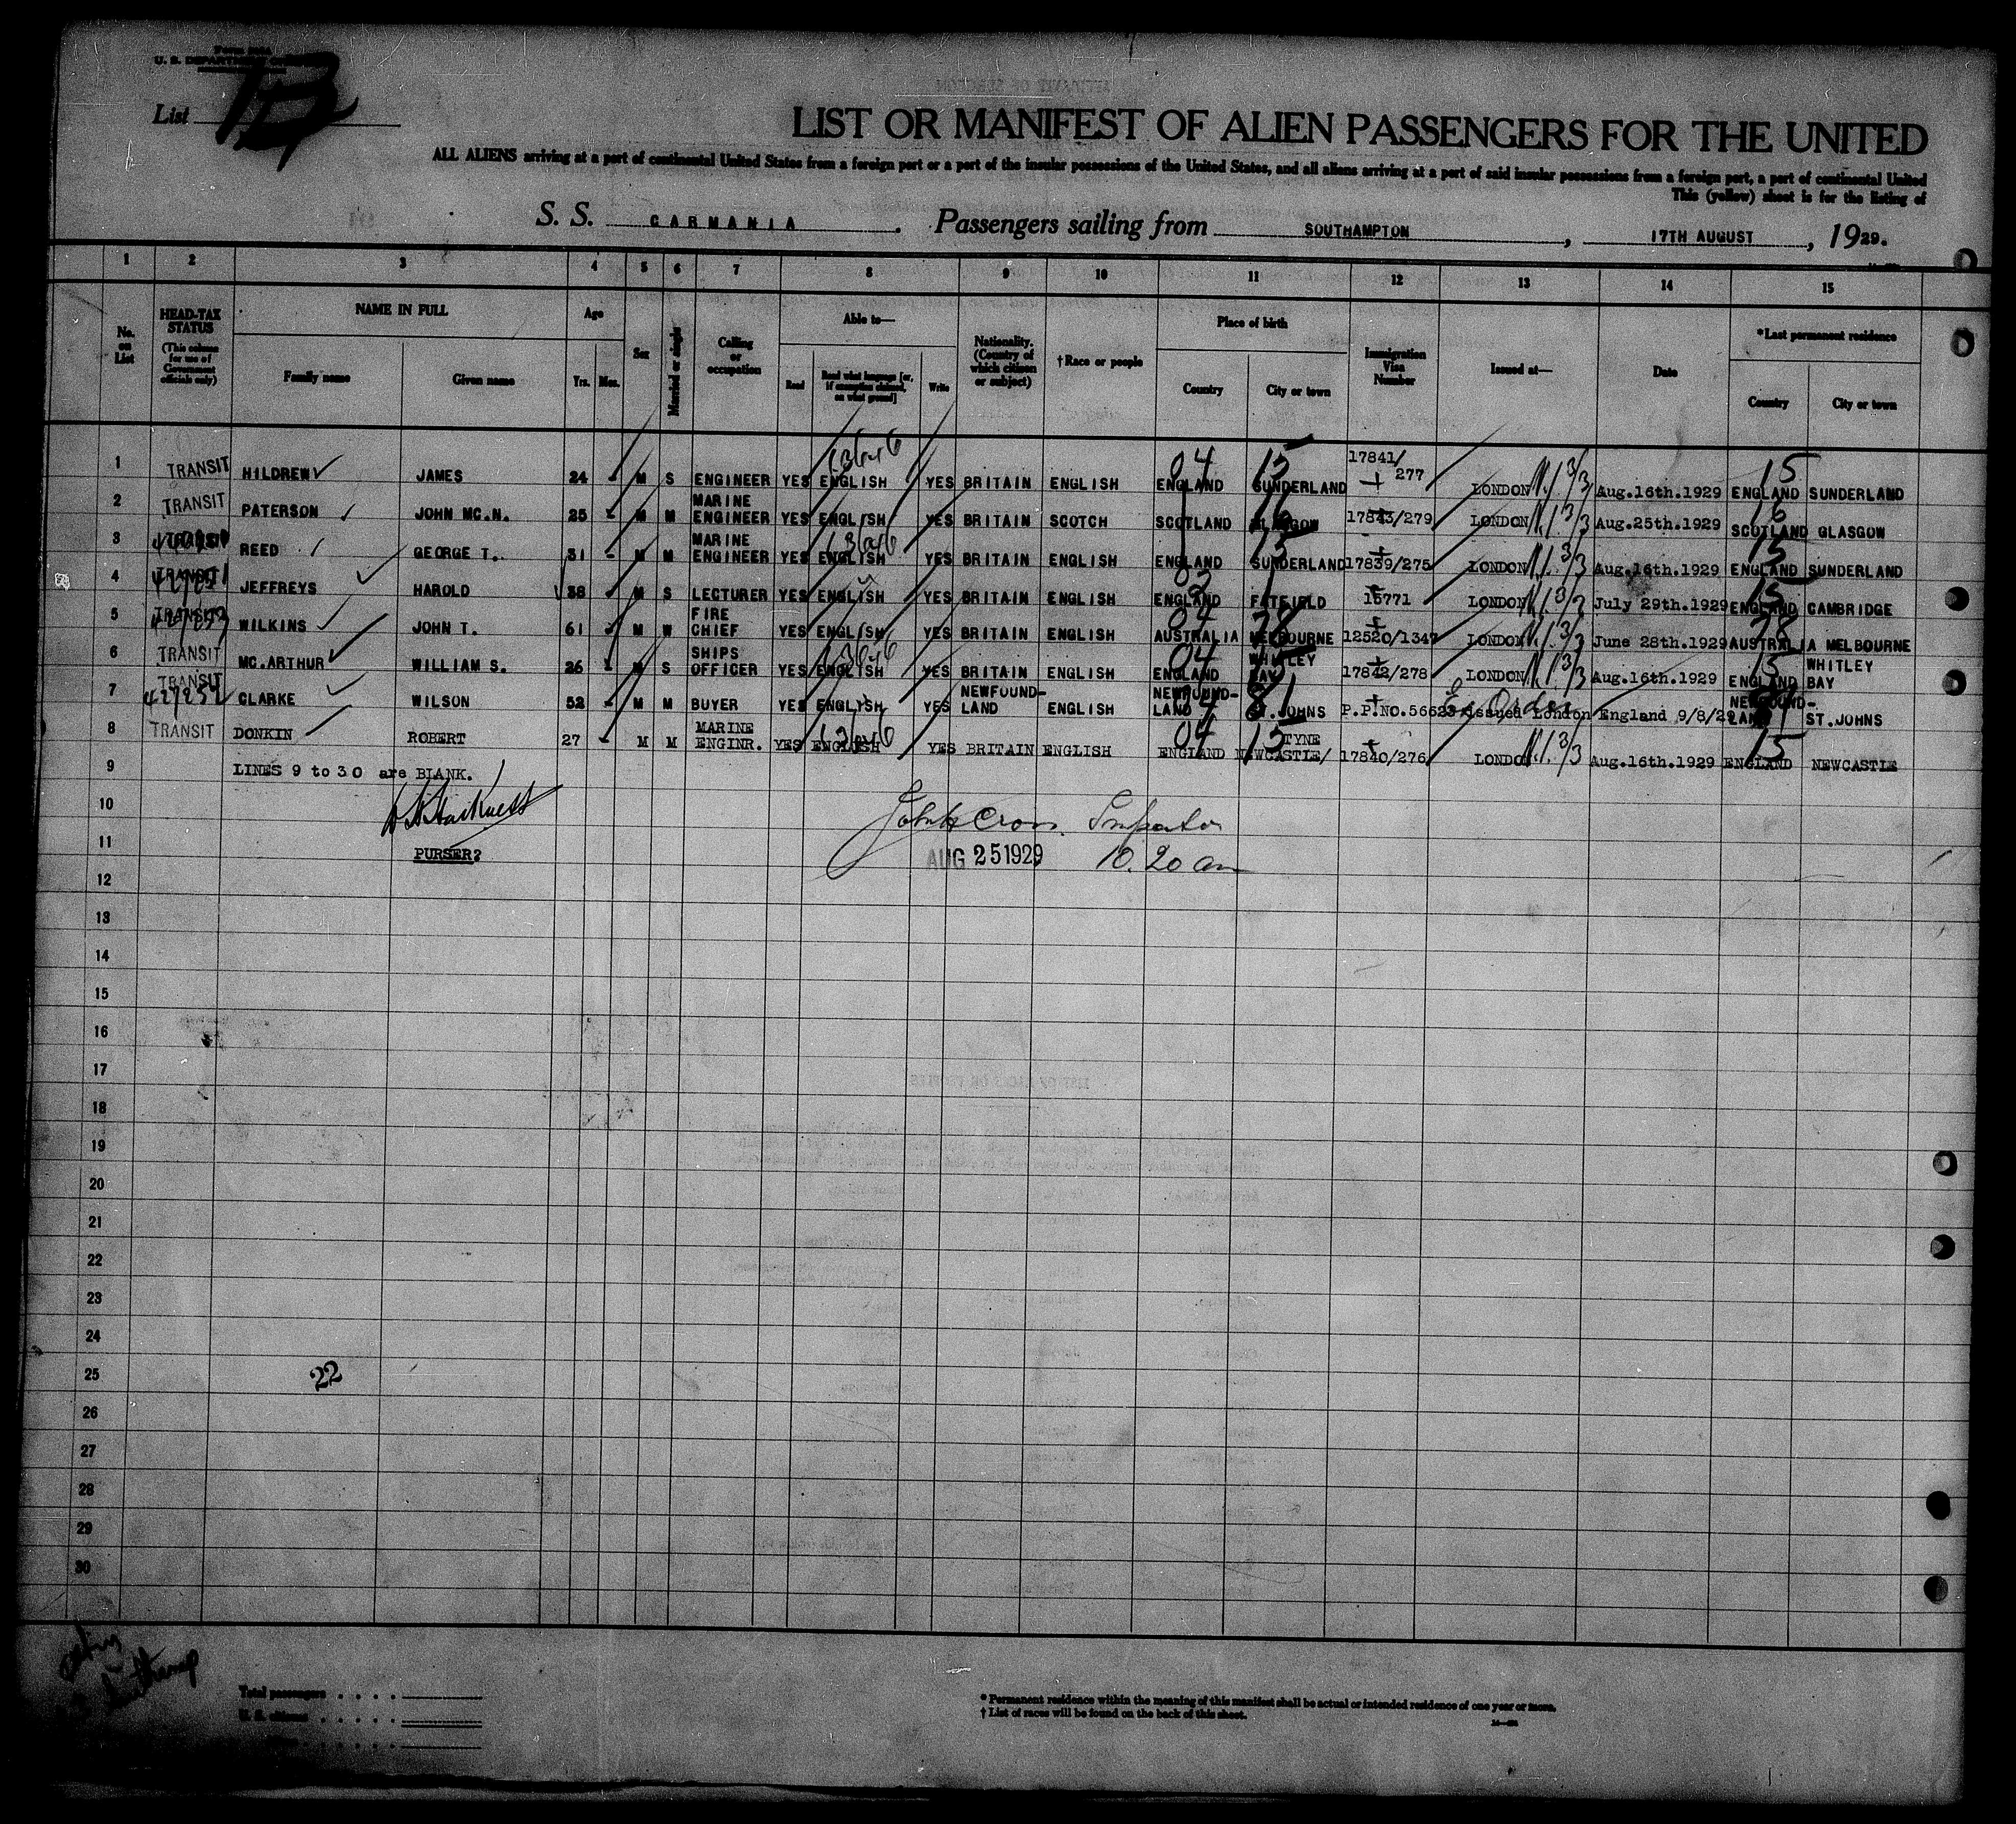 U. S. DEPARTMENT
List
LIST OR MANIFEST OF ALIEN PASSENGERS FOR THE UNITED
ALL ALIENS arriving at a port of continental United States from a foreign port or a port of the insular possessions of the United States, and all aliens arriving at a port of said insular possessions from a foreign port, a port of continental United
This (yellow) sheet is for the listing of
S. S. CARMANIA. Passengers sailing from SOUTHAMPTON, 17TH AUGUST, 1929.
1 2 3 4 5 6 7 8 9 10 11 12 13 14 15
No. on List
HEAD-TAX STATUS (This column for use of Government officials only)
NAME IN FULL
Family name Given name
Age
Yrs. Mos.
Sex
Married or single
Calling or occupation
Able to—
Read Read what language [or, if exemption claimed, on what ground] Write
Nationality. (Country of which citizen or subject)
†Race or people
Place of birth
Country City or town
Immigration Visa Number
Issued at—
Date
*Last permanent residence
Country City or town
1 TRANSIT HILDREW JAMES 24 - M S ENGINEER YES ENGLISH YES BRITAIN ENGLISH ENGLAND SUNDERLAND 17841/277 LONDON Aug.16th.1929 ENGLAND SUNDERLAND
2 TRANSIT PATERSON JOHN MC.N. 25 - M M MARINE ENGINEER YES ENGLISH YES BRITAIN SCOTCH SCOTLAND GLASGOW 17843/279 LONDON Aug.25th.1929 SCOTLAND GLASGOW
3 TRANSIT REED GEORGE T. 31 - M M MARINE ENGINEER YES ENGLISH YES BRITAIN ENGLISH ENGLAND SUNDERLAND 17839/275 LONDON Aug.16th.1929 ENGLAND SUNDERLAND
4 TRANSIT JEFFREYS HAROLD 38 M S LECTURER YES ENGLISH YES BRITAIN ENGLISH ENGLAND FATFIELD 15771 LONDON July 29th.1929 ENGLAND CAMBRIDGE
5 TRANSIT WILKINS JOHN T. 61 - M W FIRE CHIEF YES ENGLISH YES BRITAIN ENGLISH AUSTRALIA MELBOURNE 12520/1347 LONDON June 28th.1929 AUSTRALIA MELBOURNE
6 TRANSIT MC.ARTHUR WILLIAM S. 26 - M S SHIPS OFFICER YES ENGLISH YES BRITAIN ENGLISH ENGLAND WHITLEY BAY 17842/278 LONDON Aug.16th.1929 ENGLAND WHITLEY BAY
7 TRANSIT CLARKE WILSON 52 - M M BUYER YES ENGLYSH YES NEWFOUND-LAND ENGLISH NEWFOUND-LAND ST.JOHNS P.P.NO.56623 issued London England 9/8/29 NEWFOUND-LAND ST.JOHNS
8 TRANSIT DONKIN ROBERT 27 - M M MARINE ENGINR. YES ENGLISH YES BRITAIN ENGLISH ENGLAND NEWCASTLE/TYNE 17840/276 LONDON Aug.16th.1929 ENGLAND NEWCASTLE
9 LINES 9 to 30 are BLANK.
10
11 PURSER?
AUG 25 1929 10.20 am
12
13
14
15
16
17
18
19
20
21
22
23
24
25 22
26
27
28
29
30
Total passengers
U. S. citizens
* Permanent residence within the meaning of this manifest shall be actual or intended residence of one year or more.
† List of races will be found on the back of this sheet.